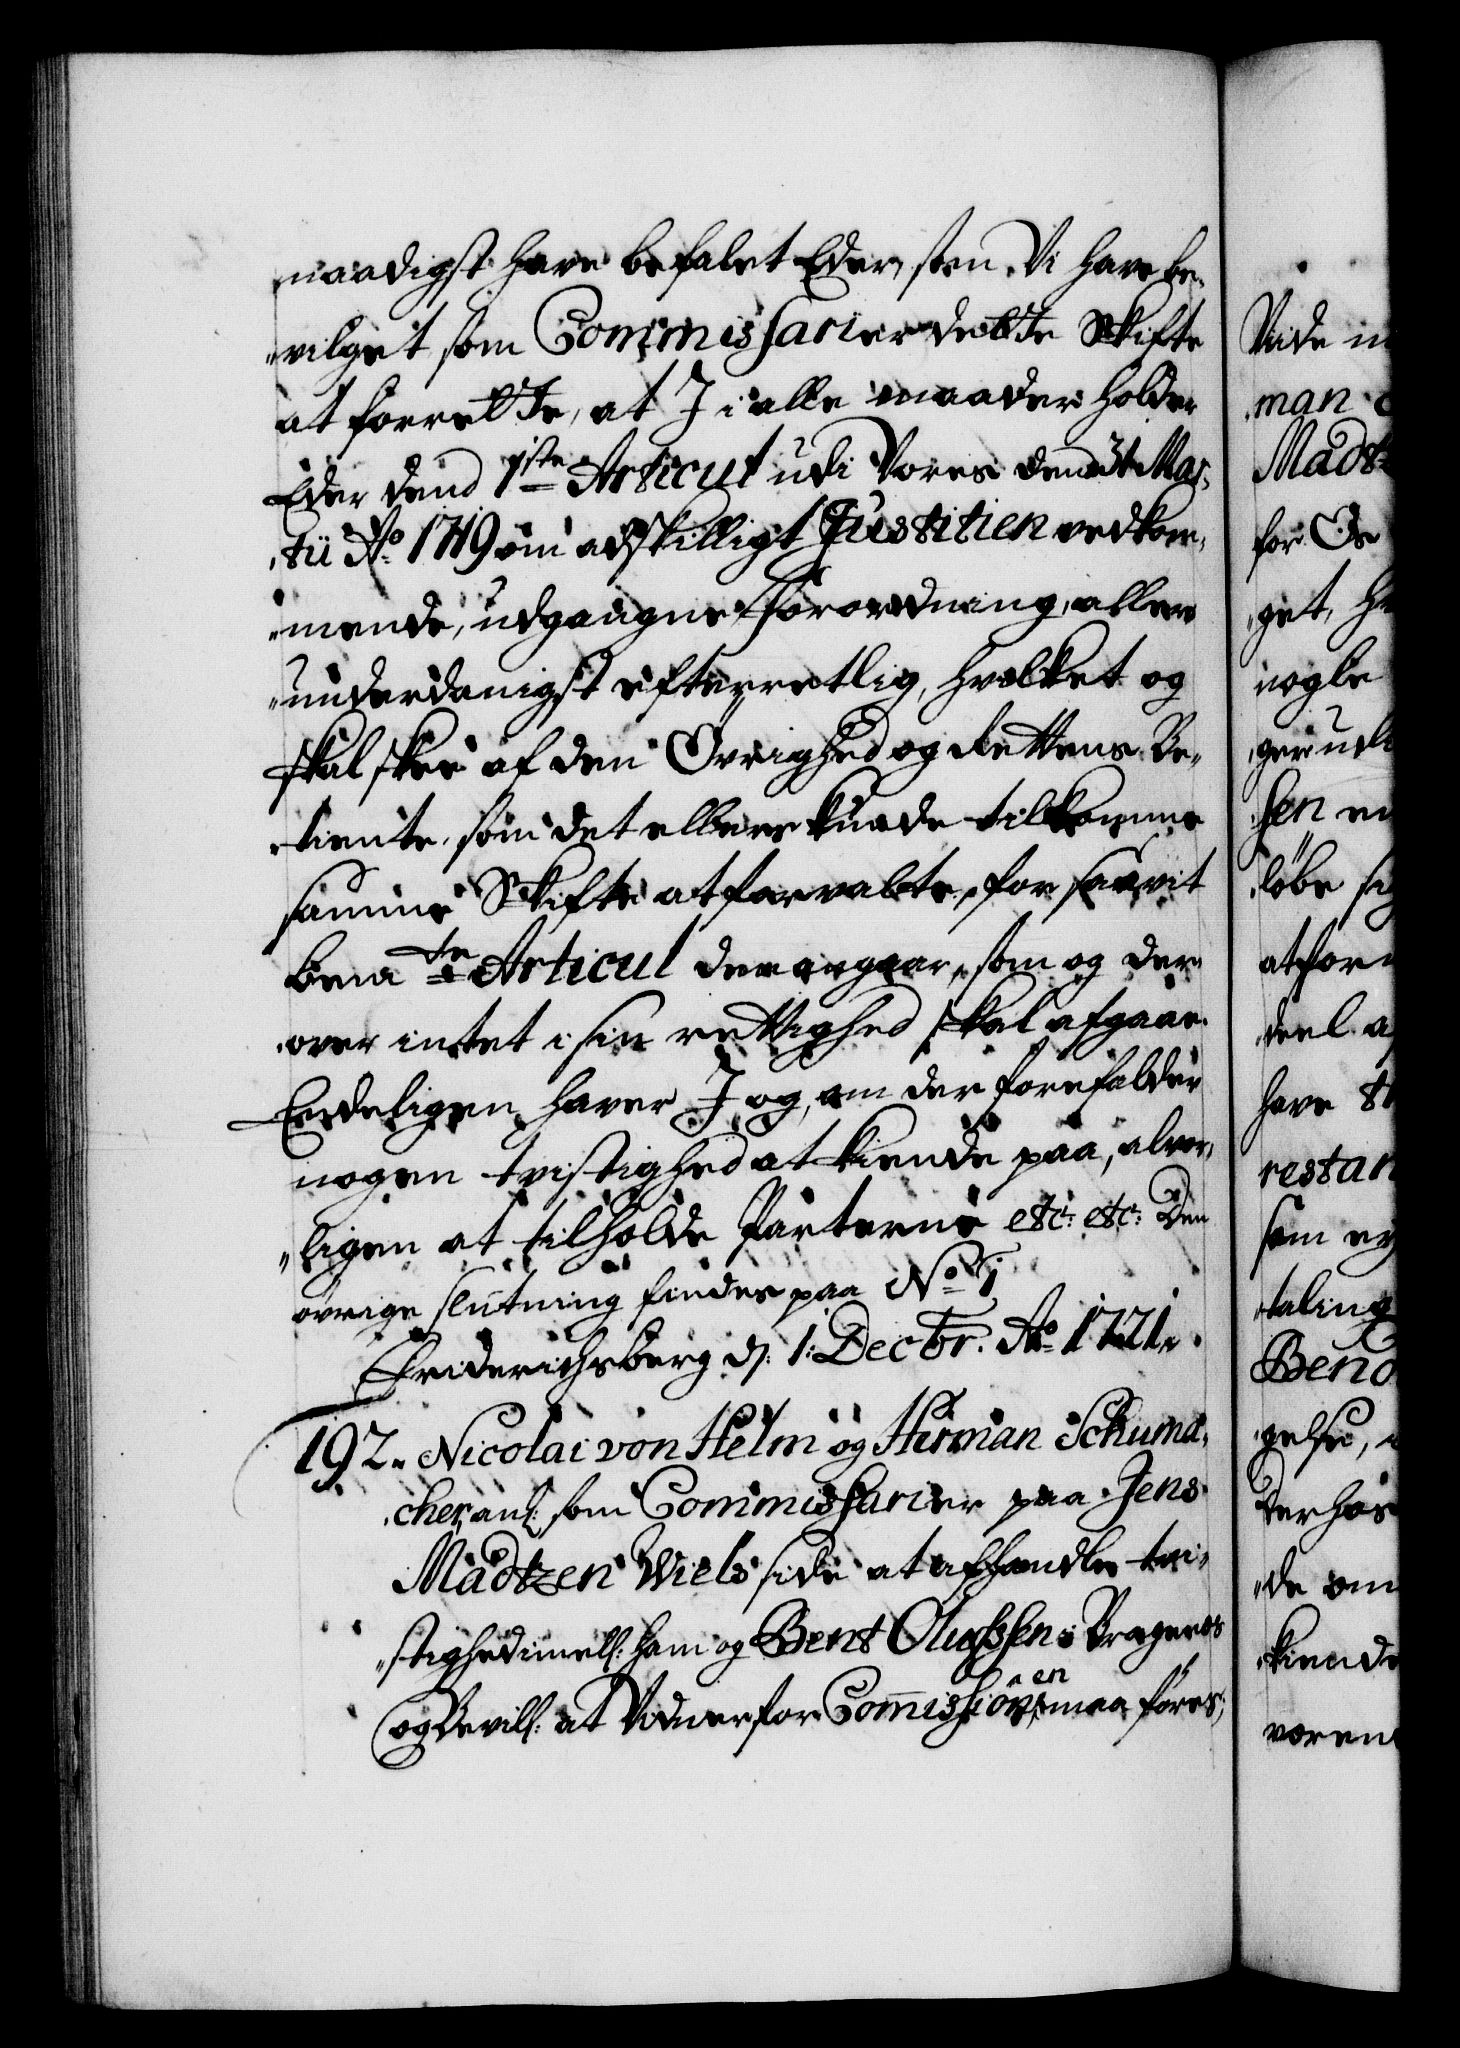 naadigst have befalet Eder, som Vi have be¬
„vilget som Commissarier dette Skifte
at forrette, at I i alle maader holder
Eder dend 1ste Articul udi Vores dend 31 Mar¬
„tii Ao 1719 om adskilligt Justitien vedkom¬
„mende, udgangne Forordning, aller
„underdanigst efterretlig, hvilket og
skal skee af den Øvrighed og Rettens Be¬
„tiente, som det ellers kunde tilkomme
samme Skifte at forvalte, for saavit
bemte Articul dem angaar, som og der¬
„over intet i sin rettighed skal afgaae.
Endeligen haver I og, om der forefalder
nogen tvistighed at kiende paa, alvor¬
„ligen at tilholde Parterne etc: etc: Den
øvrige slutning findes paa No 1
Friderichsberg d: 1: Decbr. Ao 1721.
192. Nicolai von Helm og Herman Schuma¬
„cher, anl: som Commissarier paa Jens
Madtzen Wiels side at afhandle tvi¬
„stighed imell: ham og Bent Olufssen i Bragernes
og Bevill: at Vidner for Commissionen maa føres,
Vide
man
Madtz
for
„get,
nogle
„ger udi
„sen
„løbe sig
at for
„deel
have
restan
som
„taling
Bend
„gelse,
der hos
„de om
„kiende
voren